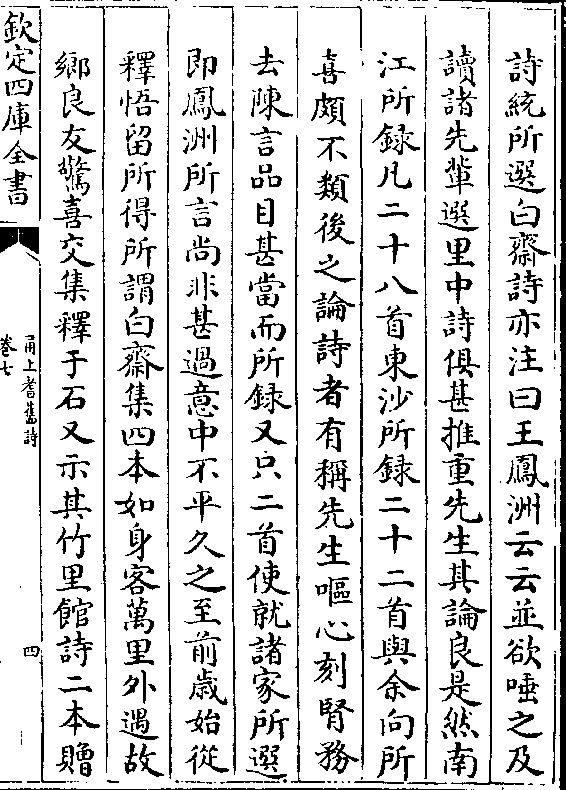 詩統所選白齋詩亦注曰王鳳洲云云並欲唾之及
讀諸先輩選里中詩俱甚推重先生其論良是然南
江所録凡二十八首東沙所録二十二首與余向所
喜頗不類後之論詩者有稱先生嘔心刻腎務
去陳言品目甚當而所録又只二首使就諸家所選
即鳳洲所言尚非甚過意中不平久之至前歳始從
釋悟留所得所謂白齋集四本如身客萬里外遇故
鄉良友驚喜交集釋于石又示其竹里館詩二本贈
欽定四庫全書
甬上耆舊詩
卷七
四